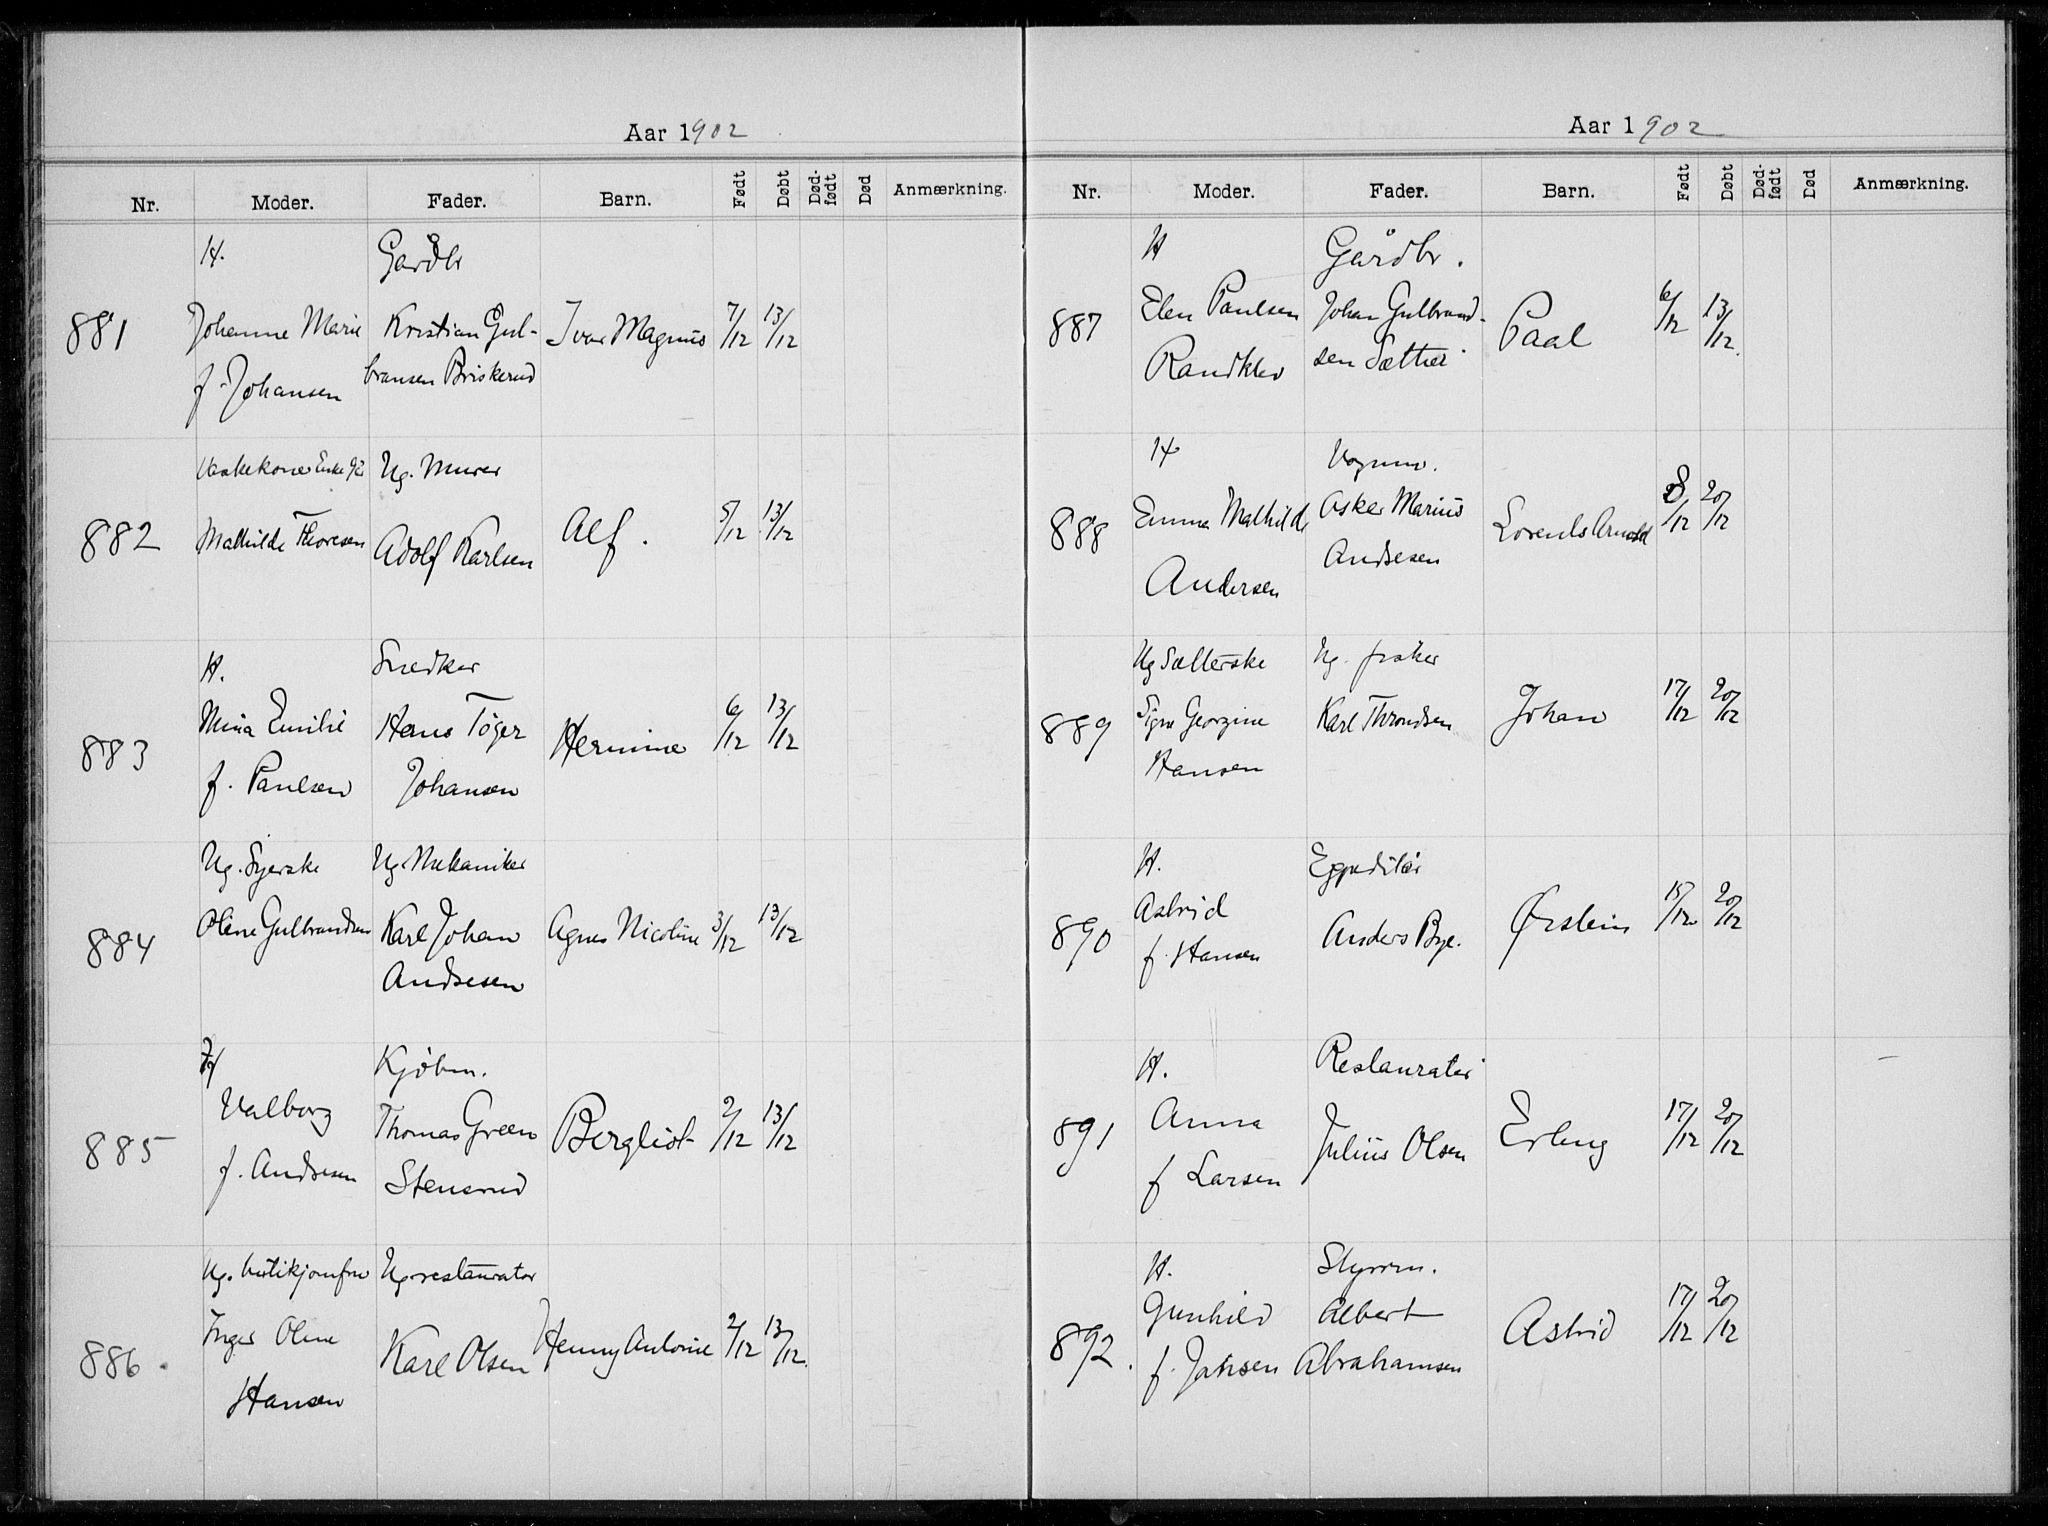 Aar 1902
Nr. Moder. Fader. Barn. Født Døbt Død-født Død Anmærkning.
H. Gårdbr
881 Johanne Marie Kristian Gul- Ivar Magnus 7/12 13/12
f. Johansen bransen Briskerud
Vaskekone Enke 92 Ug. Murer
882 Mathilde Thoresen Adolf Karlsen Alf. 5/12 13/12
H. Snedker
883 Mina Emilie Hans Töger Hermine 6/12 13/12
f. Paulsen Johansen
Ug. Syerske Ug. Mekaniker
884 Oline Gulbrandsen Karl Johan Agnes Nicoline 3/12 13/12
Andresen
H Kjöbm.
885 Valborg Thomas Green Bergliot 2/12 13/12
f. Andresen Stensrud
Ug. butikjomfru Ug restaurator
886. Inger Oline Karl Olsen Henny Antonie 2/12 13/12.
Hansen
Aar 1902
Nr. Moder. Fader. Barn. Født Døbt Død-født Død Anmærkning.
H Gårdbr.
887 Elen Paulsen Johan Gulbrand- Paal 6/12 13/12.
Randklev sen Sæther
H Vognm.
888 Emma Mathilde Asker Marius Lorents Arnold 8/12 20/12
Andersen Andresen
Ug Sætterske Ug.
889 Signe Georgine Karl Throndsen Johan 17/12 20/12
Hansen
H. Expeditör
890 Astrid Anders Bye. Ørstein 15/12 20/12
f. Hansen
H. Restauratör
891 Anna Julius Olsen Erling 17/12 20/12
f Larsen
H. Styrm.
892. Gunhild Albert Astrid 17/12 20/12
f. Jansen Abrahamsen